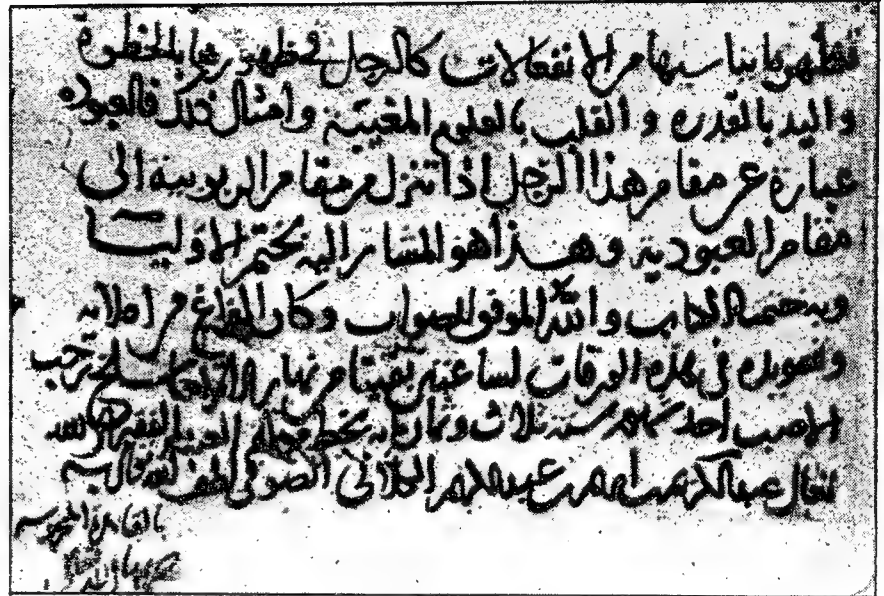 فتظهر بما يناسبها من الانفعالات كالرجل في ظهورها بالخطوة
واليد بالقدره والقلب بالعلوم المغيبة وامثال ذلك فالعبوده
عبارة عن مقام هذا الرجل اذا تنزل من مقام الربوبيه الى
مقام العبوديه وهذا هو المشار اليه بختم الاوليا
وبه ختمنا الكتاب والله الموفق للصواب وكان الفراغ من املايه
وتسويده في هذه الورقات لساعتين بقيتا من نهار سلخ رجب
الاصب احد شهور سنه ثلاث وثمانمايه بخط الفقير الى الله
تعالى عبدالكريم بن عبدالكريم الصوفي لطف الله تعالى به
بالقاهرة المحروسه